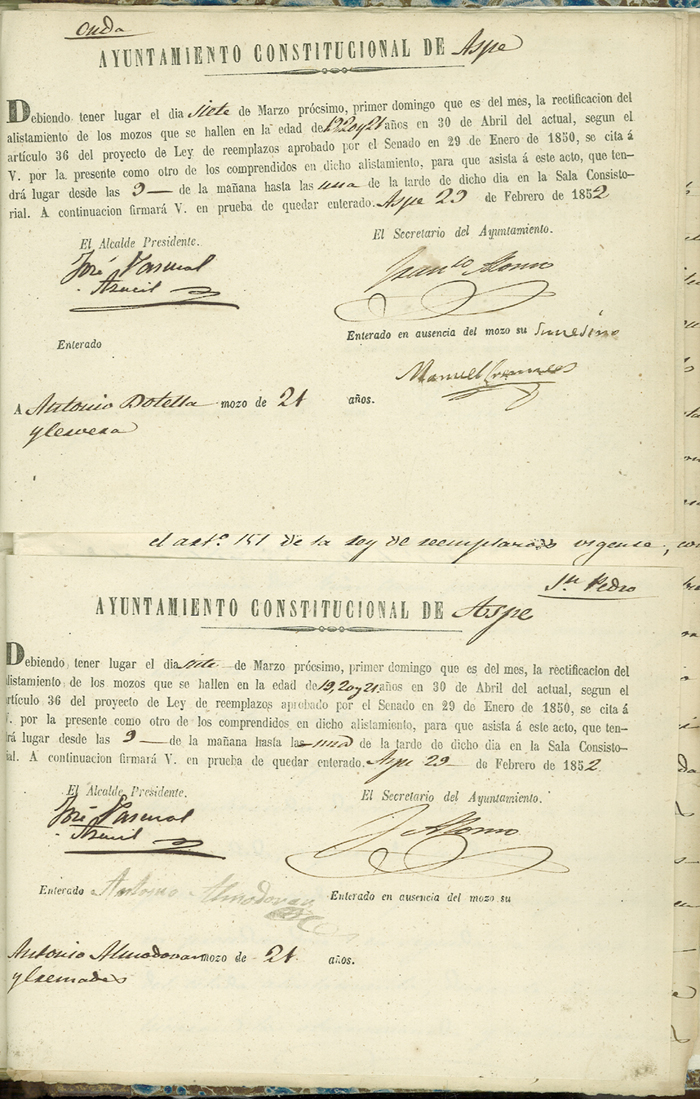 Onda
AYUNTAMIENTO CONSTITUCIONAL DE Aspe
Debiendo tener lugar el dia siete de Marzo prócsimo, primer domingo que es del mes, la rectificacion del
alistamiento de los mozos que se hallen en la edad de 19 20 y 21 años en 30 de Abril del actual, segun el
artículo 36 del proyecto de Ley de reemplazos aprobado por el Senado en 29 de Enero de 1850, se cita á
V. por la presente como otro de los comprendidos en dicho alistamiento, para que asista á este acto, que ten-
drá lugar desde las 9 de la mañana hasta las una de la tarde de dicho dia en la Sala Consisto-
rial. A continuacion firmará V. en prueba de quedar enterado. Aspe 29 de Febrero de 1852
El Alcalde Presidente.
El Secretario del Ayuntamiento.
José Pascual
Alonso
Enterado
Enterado en ausencia del mozo su
Manuel
A Antonio Botella mozo de 21 años.
y Cervera
el artº. 151 de la ley de reemplazos vigente,
Sn. Pedro
AYUNTAMIENTO CONSTITUCIONAL DE Aspe
Debiendo tener lugar el dia siete de Marzo prócsimo, primer domingo que es del mes, la rectificacion del
alistamiento de los mozos que se hallen en la edad de 19, 20 y 21 años en 30 de Abril del actual, segun el
artículo 36 del proyecto de Ley de reemplazos aprobado por el Senado en 29 de Enero de 1850, se cita á
V. por la presente como otro de los comprendidos en dicho alistamiento, para que asista á este acto, que ten-
drá lugar desde las 9 de la mañana hasta las una de la tarde de dicho dia en la Sala Consisto-
rial. A continuacion firmará V. en prueba de quedar enterado. Aspe 29 de Febrero de 1852.
El Alcalde Presidente.
El Secretario del Ayuntamiento.
José Pascual
Alonso
Enterado Antonio Almodovar
Enterado en ausencia del mozo su
Antonio Almodovar mozo de 21 años.
y Cremades